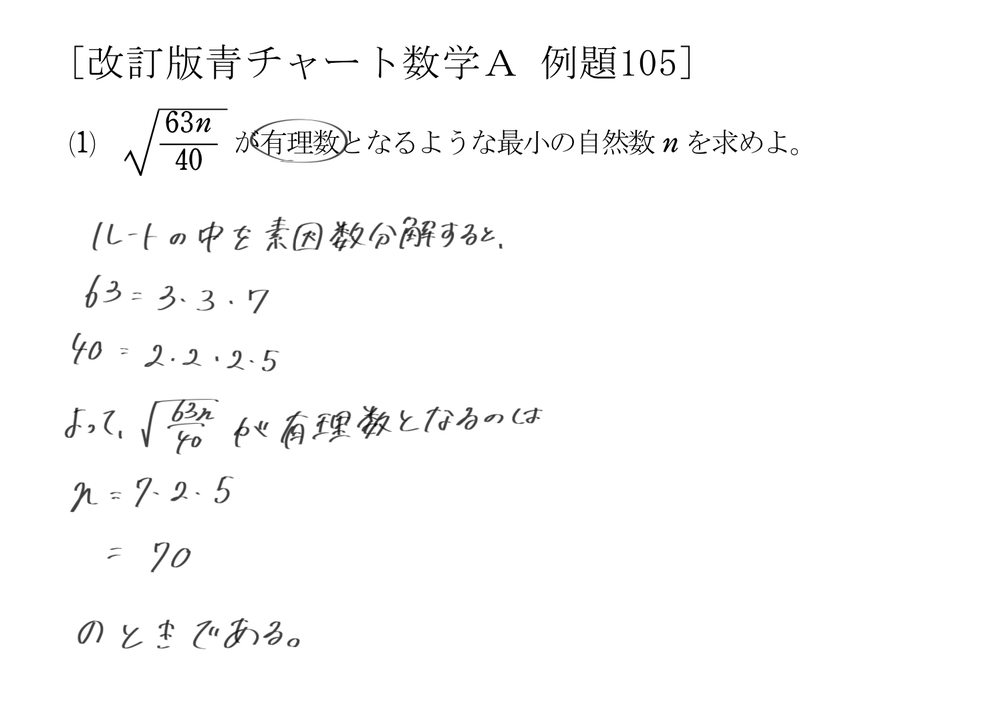 [改訂版青チャート数学A 例題105]
(1) √(63n/40) が有理数となるような最小の自然数 n を求めよ。
ルートの中を素因数分解すると、
63 = 3・3・7
40 = 2・2・2・5
よって、√(63n/40) が有理数となるのは
n = 7・2・5
= 70
のときである。